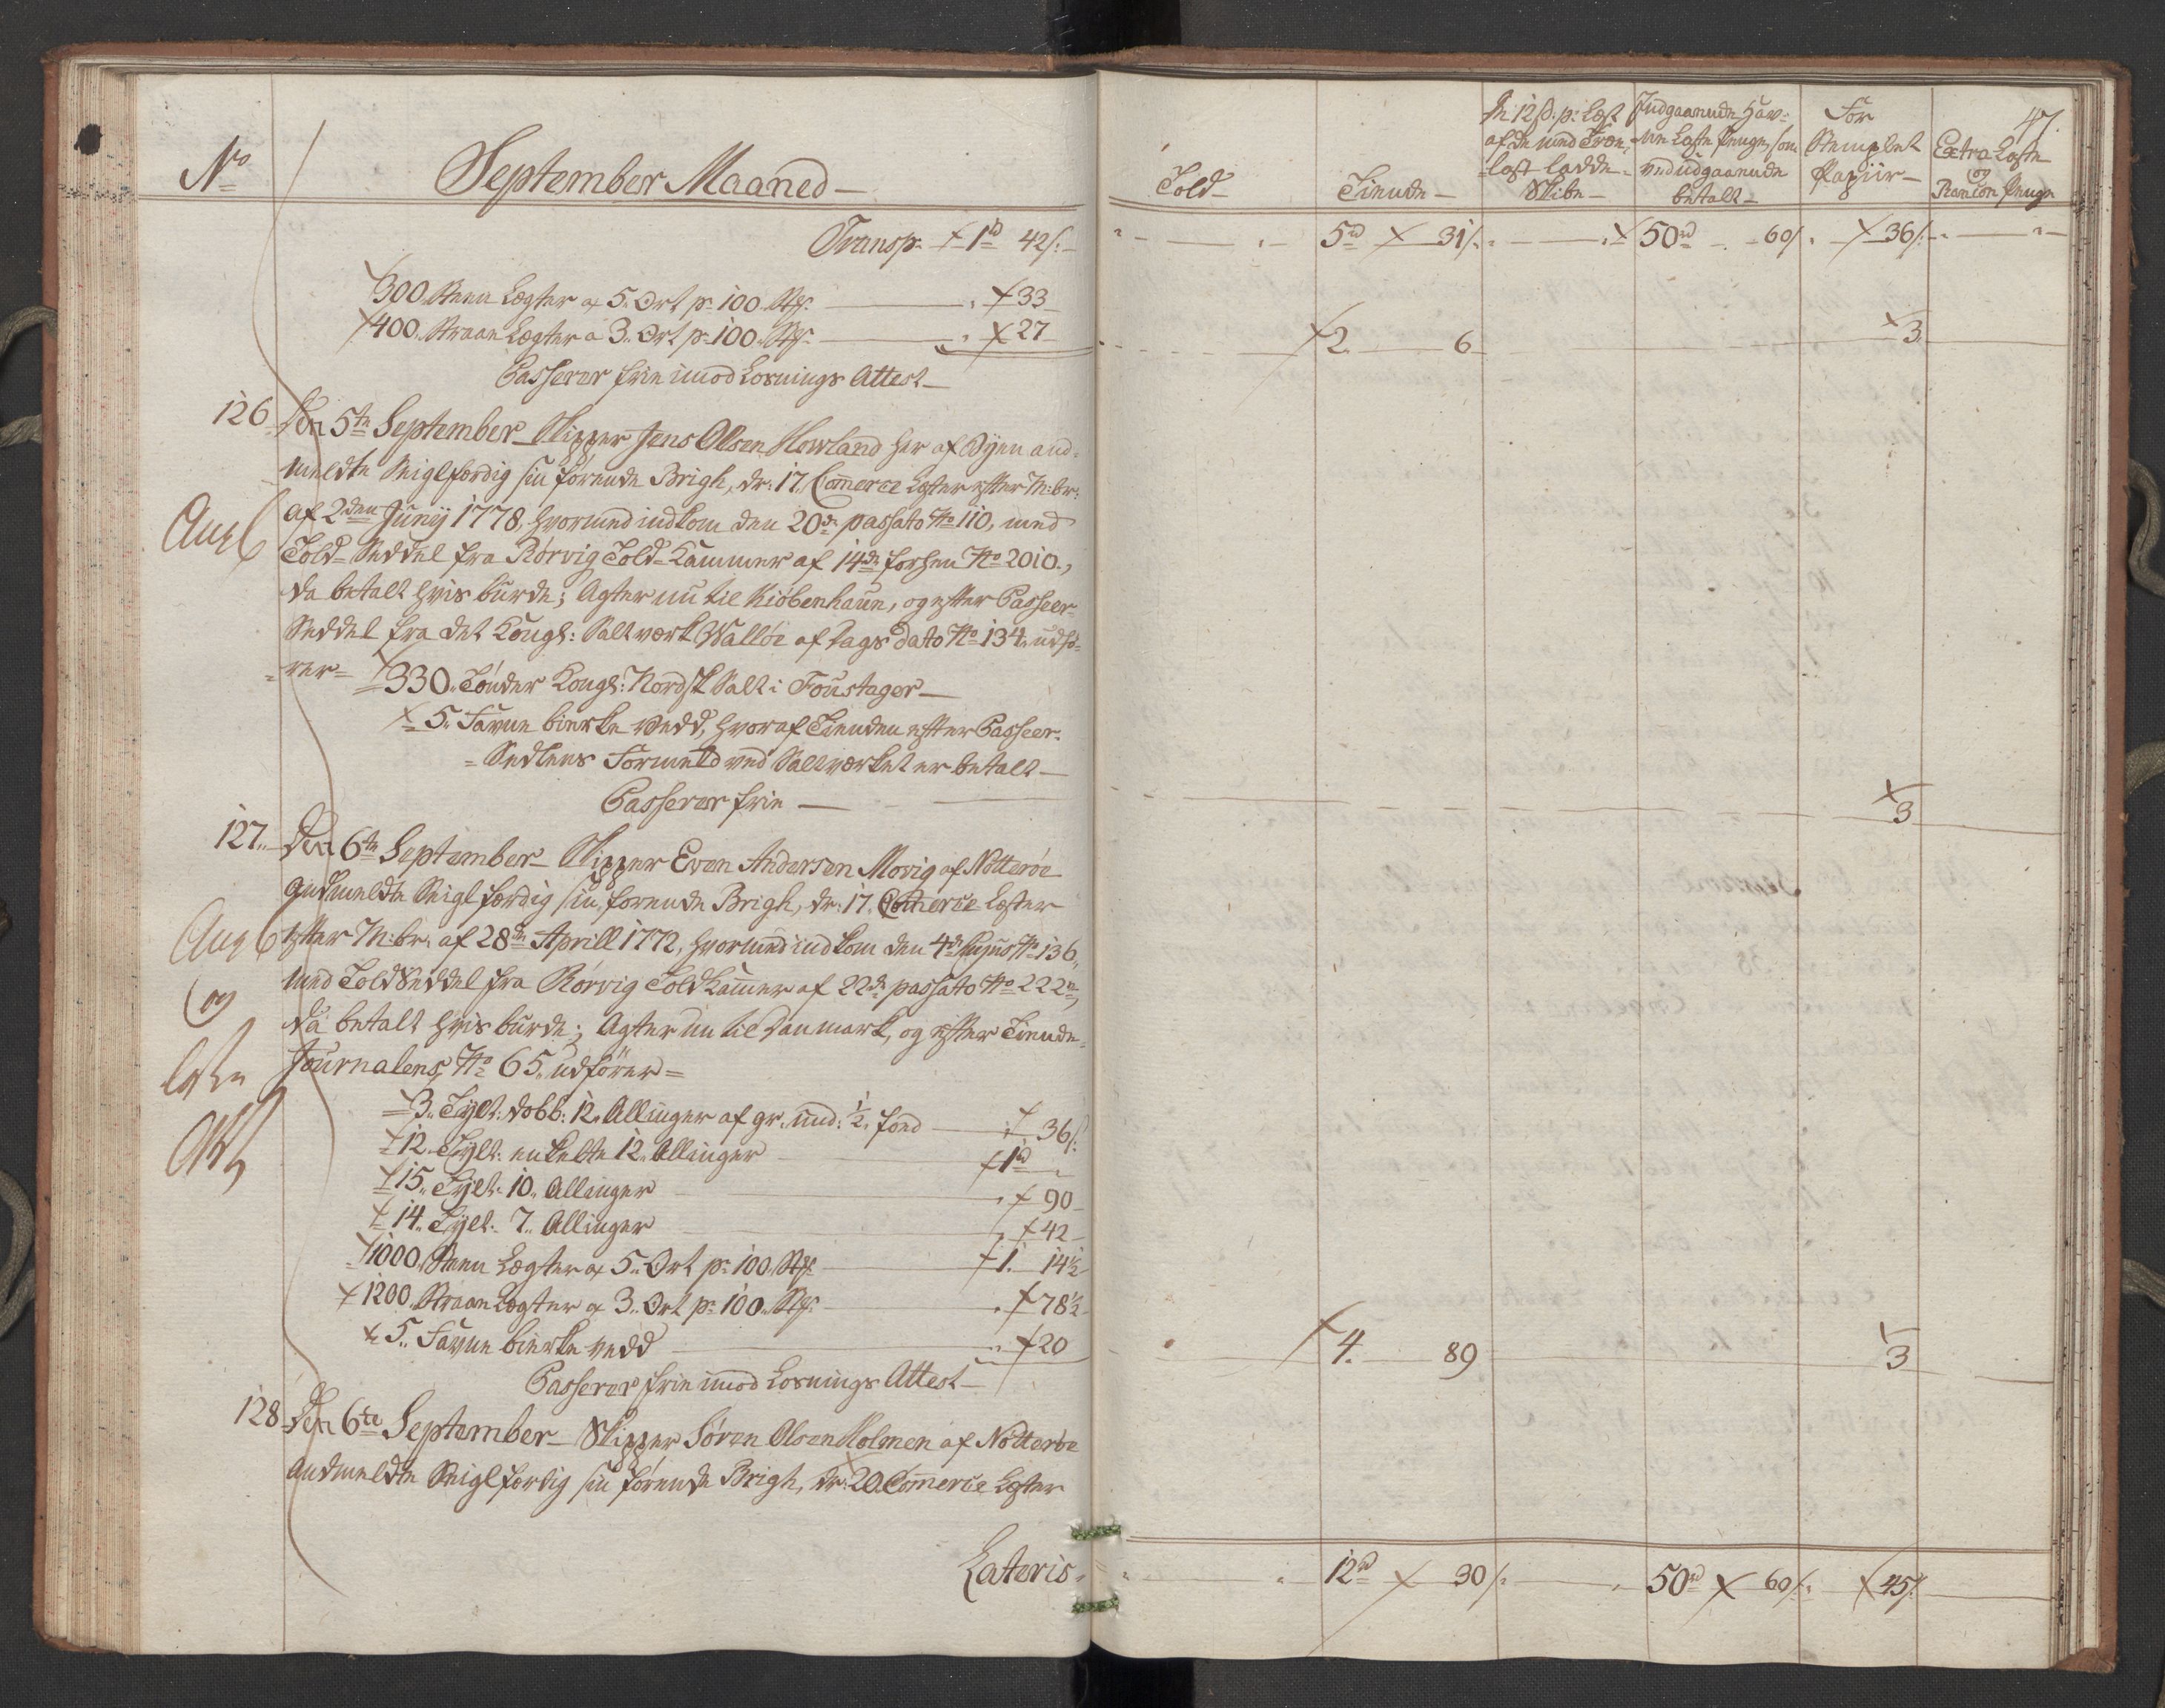 No
September Maaned
Transp. 1rd 42s.
300 Steen Lægter a 5 Ort pr 100 Stk. 33
400 Straae Lægter a 3 Ort pr 100 Stk. 27
Passerer frie imod Losnings Attest
126 Den 5te September Skipper Jens Olsen Howland her af Byen and-
meldte Seiglfærdig sin førende Brigh, dr: 17 Commerce Læster efter M:br:
af 2den Junij 1778, hvormed indkom den 20de passato No 110, med
Told-Seddel fra Rørvig Told-Kammer af 14de forhen No 2010,
da betalt hvis burde; Agter nu til Kiøbenhaun, og efter Passeer-
Seddel fra det Kongl: Saltværk Walløe af Dags dato No 134 udfø-
rer
330 Tønder Kongl: Nordsk Salt i Foustager
5 Favne bierke vedd, hvoraf Tienden efter Passeer-
Sedlens Formeld ved Saltværket er betalt
Passerer frie
127 Den 6te September Skipper Even Andersen Movig af Nötteröe
Andmeldte Seiglfærdig sin førende Brigh, dr: 17 Commerce Læster
efter M:br: af 28de Aprill 1772, hvormed indkom den 4de hujus No 136,
med Told Seddel fra Rørvig Told Kammer af 22de passato No 222,
da betalt hvis burde; Agter nu til Danmark, og efter Tiende-
Journalens No 65 udfører
3 Tylt: dobb: 12 Allinger af gr: und: 1/2 fod 36s.
12 Tylt: enkelte 12 Allinger 1rd
15 Tylt: 10 Allinger 90
14 Tylt: 7 Allinger 42
1000 Steen Lægter a 5 Ort pr 100 Stk. 1. 14½
1200 Straae Lægter a 3 Ort pr 100 Stk. 78½
5 Favne bierke vedd 20
Passerer frie imod Losnings Attest
128 Den 6te September Skipper Søren Olsen Holmen af Nötteröe
Andmeldte Seiglfærdig sin førende Brigh, dr: 20 Commerce Læster
Lateris
47.
Told
Tiende
A 12 s. pr Læst af de med Træ-last ladde Skibe
Indgaaende Hav-ne Læste Penge, som ved udgaaende betalt
For Stemplet Papiir
Extra Læste og Rancon Penge
5rd 31s. 50rd 60s. 36s.
2. 6 3
3
4. 89 3
12rd 30s. 50rd 60s. 45s.